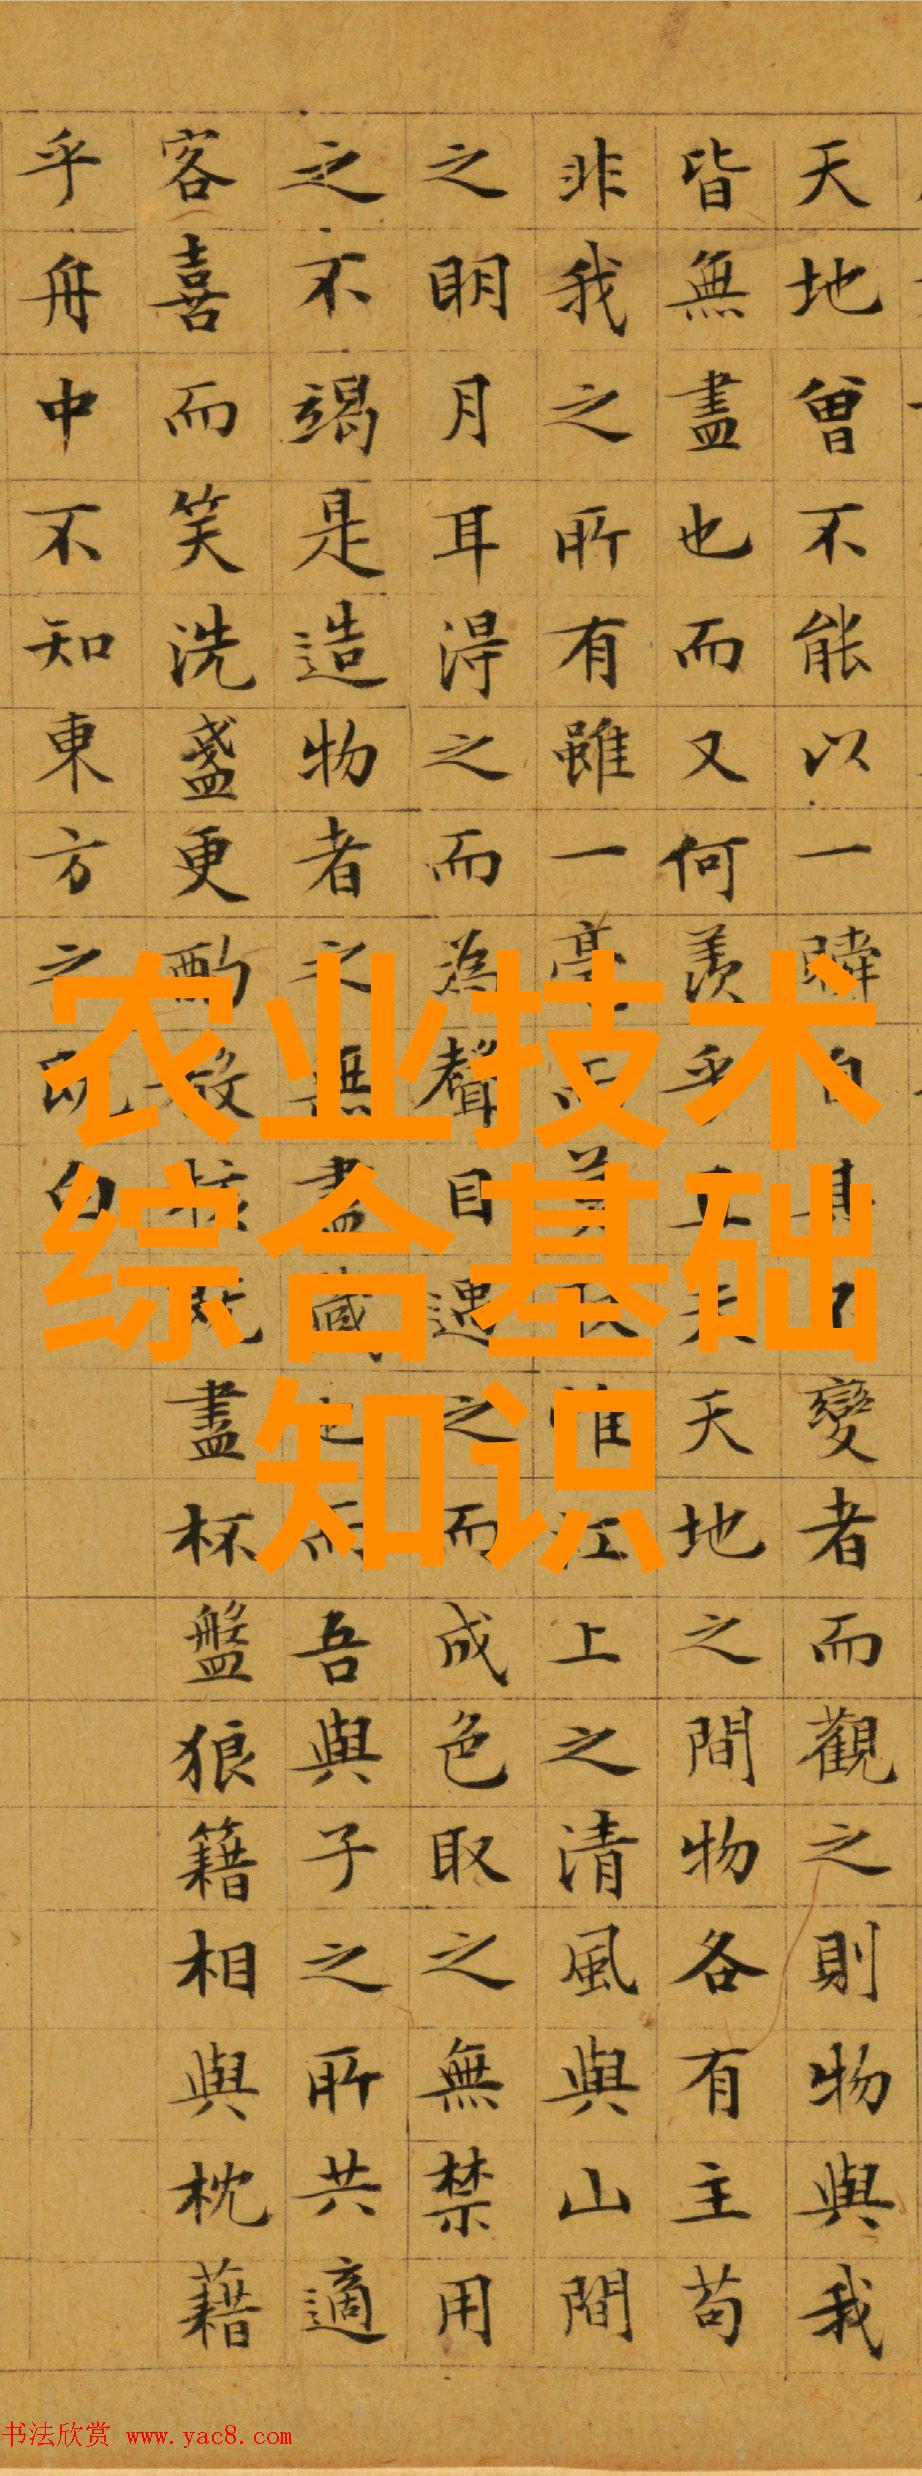 天地曾不能以一瞬自其不變者而觀之則物與我
皆無盡也而又何羨乎且夫天地之間物各有主苟
非我之所有雖一毫而莫取惟江上之清風與山間
之明月耳得之而為聲目遇之而成色取之無禁用
之不竭是造物者之無盡藏也而吾與子之所共適
客喜而笑洗盞更酌核既盡杯盤狼籍相與枕藉
乎舟中不知東方之既白
农业技术
综合基础
知识
书法欣赏 www.yac8.com